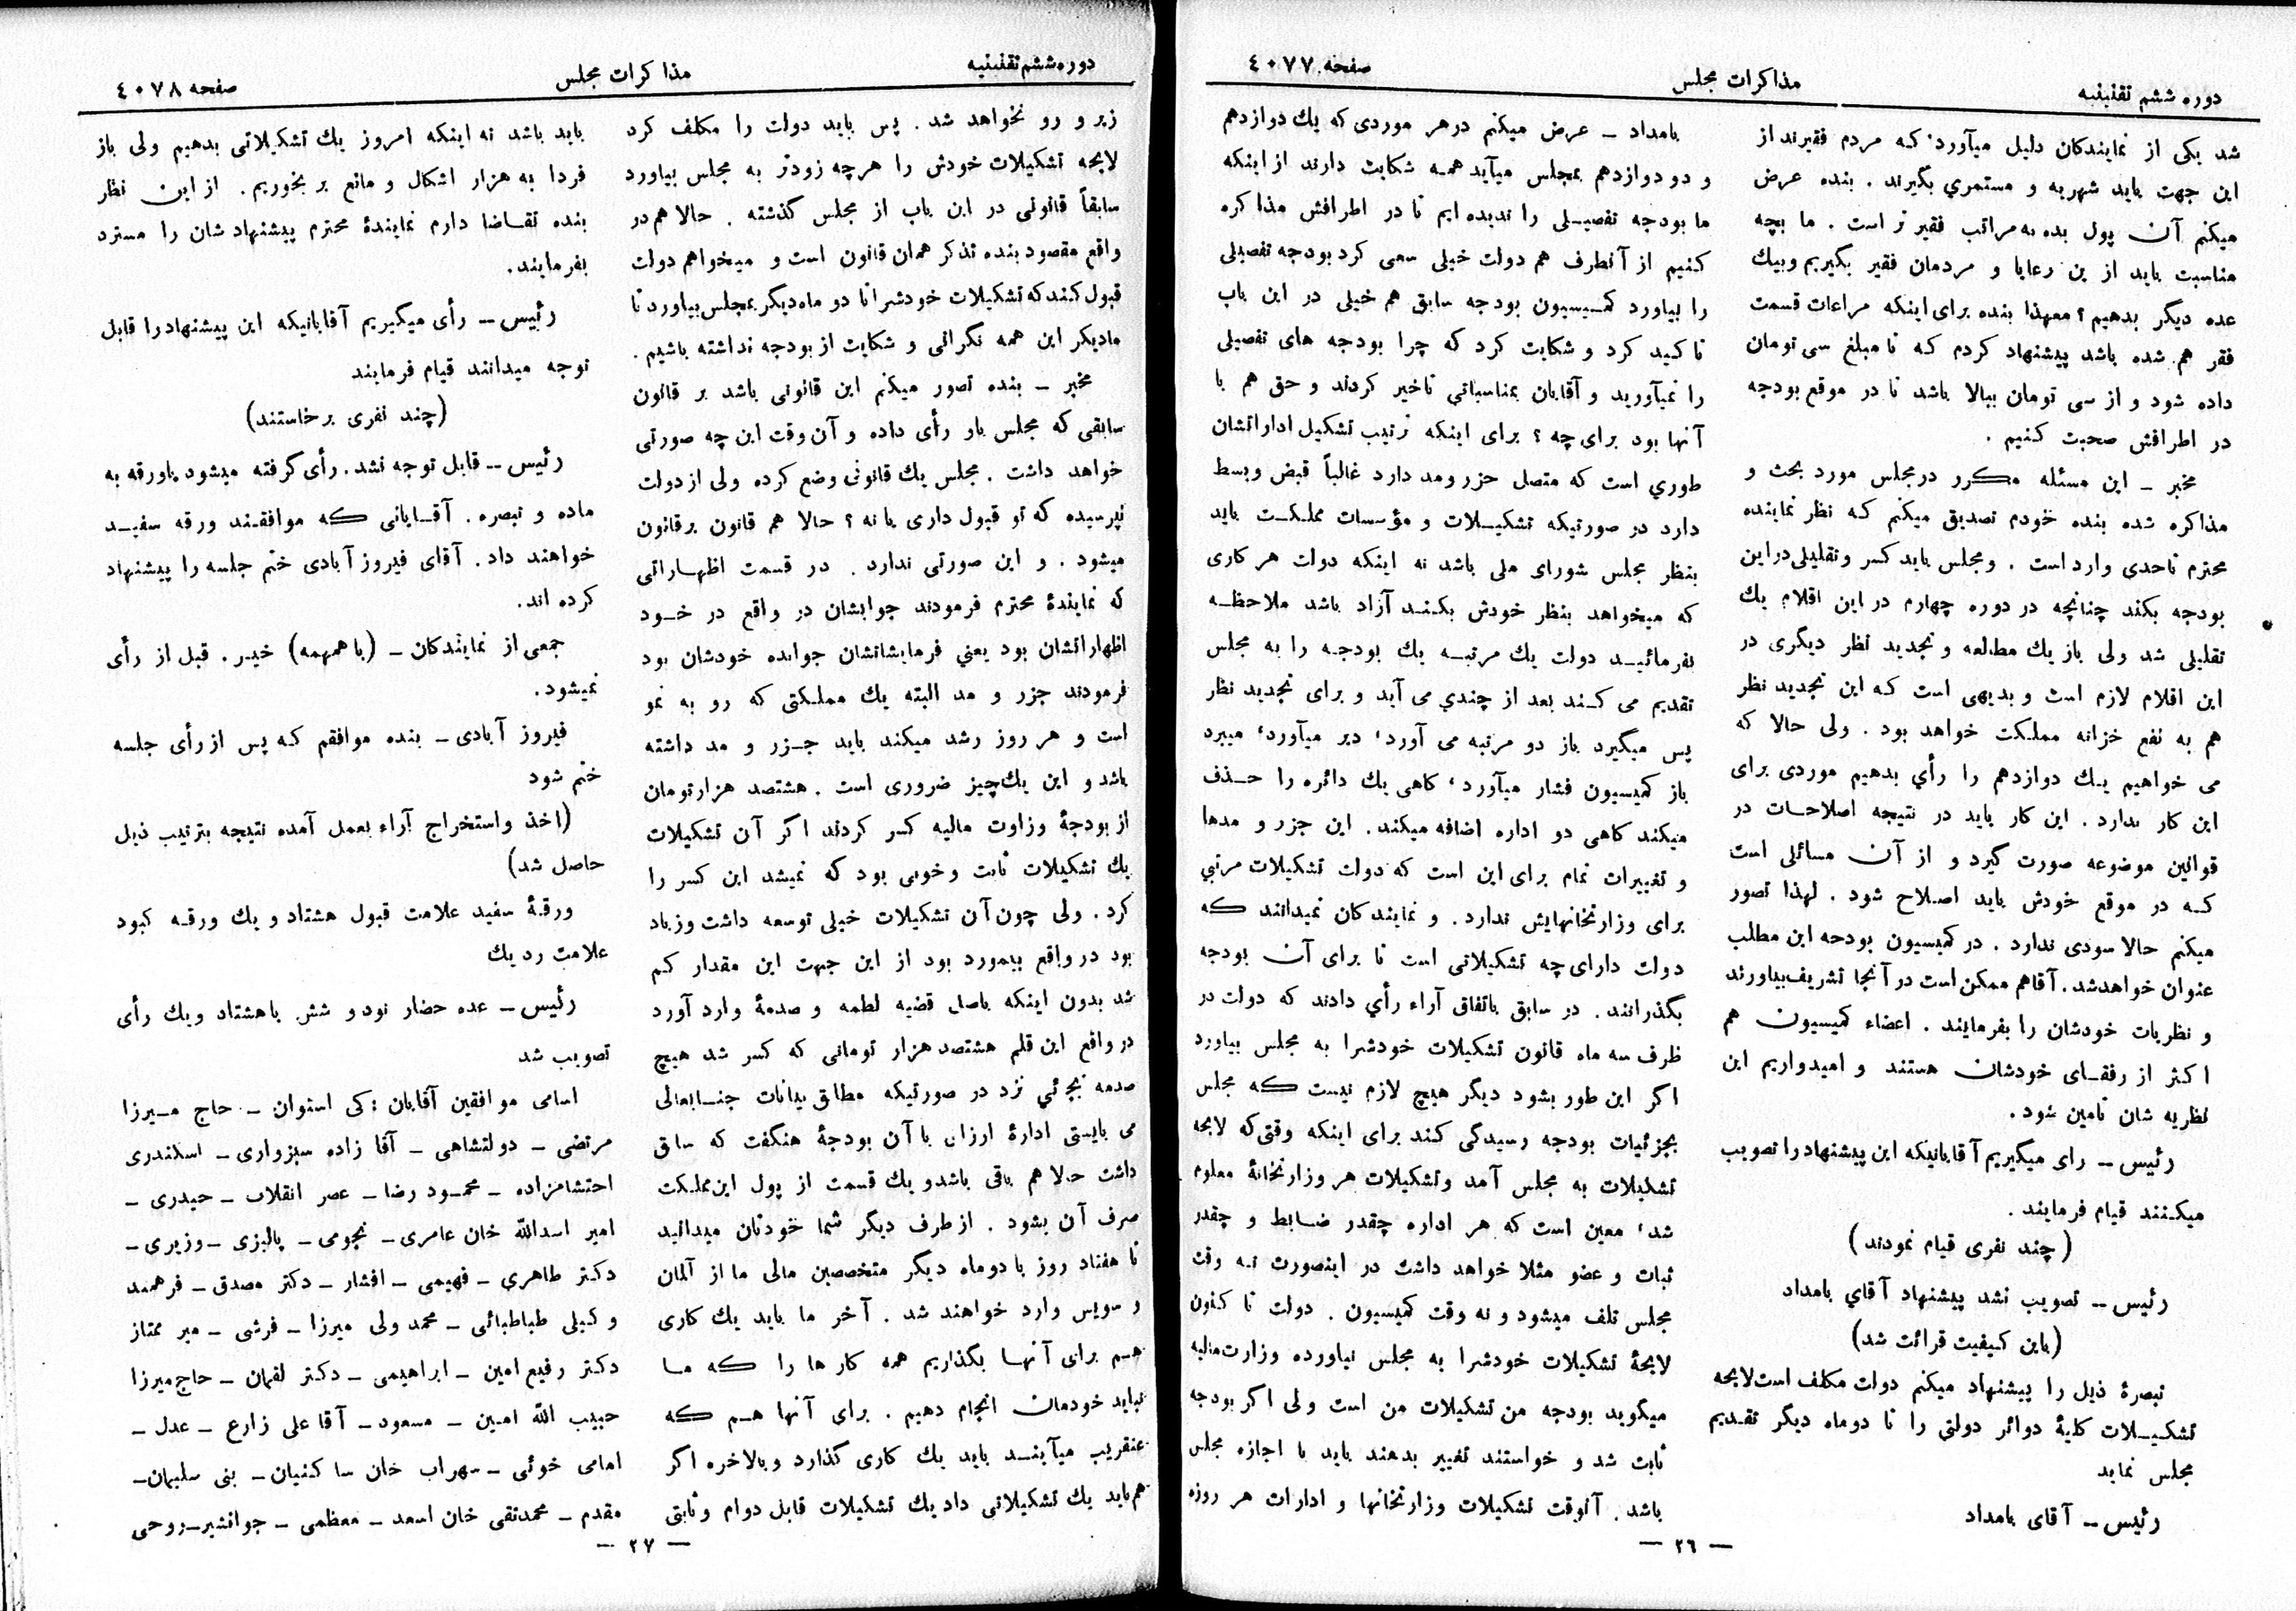 دوره ششم تقنینیه
مذاکرات مجلس
صفحه ٤٠٧٧
شد یکی از نمایندگان دلیل میآورد، که مردم فقیرند از
این جهت باید شهریه و مستمري بگیرند . بنده عرض
میکنم آن پول بده به مراتب فقیر تر است . ما بچه
مناسبت باید از ین رعایا و مردمان فقیر بگیریم و بیك
عده دیگر بدهیم ؟ معهذا بنده برای اینکه مراعات قسمت
فقر هم شده باشد پیشنهاد کردم که تا مبلغ سی تومان
داده شود و از سی تومان ببالا باشد تا در موقع بودجه
در اطرافش صحبت کنیم .
مخبر ـ این مسئله مکرر در مجلس مورد بحث و
مذاکره شده بنده خودم تصدیق میکنم که نظر نماینده
محترم تاحدي وارد است . و مجلس باید کسر و تقلیلی در این
بودجه بکند چنانچه در دوره چهارم در این اقلام یك
تقلیلی شد ولی باز یك مطالعه و تجدید نظر دیگری در
این اقلام لازم است و بدیهی است که این تجدید نظر
هم به نفع خزانه مملکت خواهد بود . ولی حالا که
می خواهیم یك دوازدهم را رأي بدهیم موردی برای
این کار ندارد . این کار باید در نتیجه اصلاحات در
قوانین موضوعه صورت گیرد و از آن مسائلی است
که در موقع خودش باید اصلاح شود . لهذا تصور
میکنم حالا سودی ندارد . در کمیسیون بودجه این مطلب
عنوان خواهد شد . آقا هم ممکن است در آنجا تشریف بیاورند
و نظریات خودشان را بفرمایند . اعضاء کمیسیون هم
اکثر از رفقای خودشان هستند و امیدواریم این
نظریه شان تأمین شود .
رئیس ـ رای میگیریم آقایانیکه این پیشنهاد را تصویب
میکنند قیام فرمایند .
( چند نفری قیام نمودند )
رئیس ـ تصویب نشد پیشنهاد آقاي یامداد
(باین کیفیت قرائت شد)
تبصرهٔ ذیل را پیشنهاد میکنم دولت مکلف است لایحه
تشکیلات کلیهٔ دوائر دولتي را تا دوماه دیگر تقدیم
مجلس نماید
رئیس ـ آقای یامداد
یامداد ـ عرض میکنم در هر موردی که یك دوازدهم
و دو دوازدهم بمجلس میآید همه شکایت دارند از اینکه
ما بودجه تفصیلی را ندیده ایم تا در اطرافش مذاکره
کنیم از آنطرف هم دولت خیلی سعی کرد بودجه تفصیلی
را بیاورد کمیسیون بودجه سابق هم خیلی در این باب
تاکید کرد و شکایت کرد که چرا بودجه های تفصیلی
را نمیآورید و آقایان بمناسباتي تاخیر کردند و حق هم با
آنها بود برای چه ؟ برای اینکه ترتیب تشکیل اداراتشان
طوري است که متصل جزر ومد دارد غالباً قبض و بسط
دارد در صورتیکه تشکیلات و مؤسسات مملکت باید
بنظر مجلس شورای ملی باشد نه اینکه دولت هر کاری
که میخواهد بنظر خودش بکند آزاد باشد ملاحظه
بفرمائید دولت یك مرتبه یك بودجه را به مجلس
تقدیم می کند بعد از چندي می آید و برای تجدید نظر
پس میگیرد باز دو مرتبه می آورد، دیر میآورد، میبرد
باز کمیسیون فشار میآورد، گاهی یك دائره را حذف
میکند گاهی دو اداره اضافه میکند . این جزر و مدها
و تغییرات تمام برای این است که دولت تشکیلات مرتبي
برای وزارتخانهایش ندارد . و نمایندگان نمیدانند که
دولت دارای چه تشکیلاتی است تا برای آن بودجه
بگذرانند . در سابق باتفاق آراء رأي دادند که دولت در
ظرف سه ماه قانون تشکیلات خودشرا به مجلس بیاورد
اگر این طور بشود دیگر هیچ لازم نیست که مجلس
بجزئیات بودجه رسیدگی کند برای اینکه وقتی که لایحه
تشکیلات به مجلس آمد و تشکیلات هر وزارتخانهٔ معلوم
شد، معین است که هر اداره چقدر ضابط و چقدر
ثبات و عضو مثلا خواهد داشت در اینصورت نه وقت
مجلس تلف میشود و نه وقت کمیسیون . دولت تا کنون
لایحهٔ تشکیلات خودشرا به مجلس نیاورده وزارت مالیه
میگوید بودجه من تشکیلات من است ولی اگر بودجه
ثابت شد و خواستند تغییر بدهند باید با اجازه مجلس
باشد . آنوقت تشکیلات وزارتخانها و ادارات هر روزه
— ٢٦ —
دوره ششم تقنینیه
مذاکرات مجلس
صفحه ٤٠٧٨
زیر و رو نخواهد شد . پس باید دولت را مکلف کرد
لایحه تشکیلات خودش را هرچه زودتر به مجلس بیاورد
سابقاً قانونی در این باب از مجلس گذشته . حالا هم در
واقع مقصود بنده تذکر همان قانون است و میخواهم دولت
قبول کند که تشکیلات خودشرا تا دو ماه دیگر بمجلس بیاورد تا
مادیگر این همه نگرانی و شکایت از بودجه نداشته باشیم .
مخبر ـ بنده تصور میکنم این قانونی باشد بر قانون
سابقی که مجلس باو رأی داده و آن وقت این چه صورتی
خواهد داشت . مجلس یك قانونی وضع کرده ولی از دولت
نپرسیده که تو قبول داری یا نه ؟ حالا هم قانون برقانون
میشود . و این صورتی ندارد . در قسمت اظهاراتی
که نمایندهٔ محترم فرمودند جوابشان در واقع در خود
اظهاراتشان بود یعني فرمایشاتشان جوابده خودشان بود
فرمودند جزر و مد البته یك مملکتی که رو به نمو
است و هر روز رشد میکند باید جزر و مد داشته
باشد و این یك چیز ضروری است . هشتصد هزار تومان
از بودجهٔ وزاوت مالیه کسر کردند اگر آن تشکیلات
یك تشکیلات ثابت و خوبی بود که نمیشد این کسر را
کرد . ولی چون آن تشکیلات خیلی توسعه داشت و زیاد
بود در واقع بیمورد بود از این جهت این مقدار کم
شد بدون اینکه باصل قضیه لطمه و صدمهٔ وارد آورد
در واقع این قلم هشتصد هزار تومانی که کسر شد هیچ
صدمه بجائي نزد در صورتیکه مطابق بیانات جنابعالی
می بایستی ادارهٔ ارزاق با آن بودجهٔ هنگفت که سابق
داشت حالا هم باقی باشد و یك قسمت از پول این مملکت
صرف آن بشود . از طرف دیگر شما خودتان میدانید
تا هفتاد روز یا دوماه دیگر متخصصین مالی ما از آلمان
و سویس وارد خواهند شد . آخر ما باید یك کاری
هم برای آنها بگذاریم همه کار ها را که ما
نباید خودمان انجام دهیم . برای آنها هم که
عنقریب میآیند باید یك کاری گذارد و بالاخره اگر
هم باید یك تشکیلاتی داد یك تشکیلات قابل دوام و ثابتی
باید باشد نه اینکه امروز یك تشکیلاتی بدهیم ولی باز
فردا به هزار اشکال و مانع بر بخوریم . از این نظر
بنده تقاضا دارم نمایندهٔ محترم پیشنهاد شان را مسترد
بفرمایند .
رئیس ـ رأی میگیریم آقایانیکه این پیشنهاد را قابل
توجه میدانند قیام فرمایند
(چند نفری برخاستند)
رئیس ـ قابل توجه نشد . رأی گرفته میشود باورقه به
ماده و تبصره . آقایانی که موافقند ورقه سفید
خواهند داد . آقای فیروز آبادی ختم جلسه را پیشنهاد
کرده اند .
جمعی از نمایندگان ـ (با همهمه) خیر . قبل از رأی
نمیشود .
فیروز آبادی ـ بنده موافقم که پس از رأی جلسه
ختم شود
(اخذ و استخراج آراء بعمل آمده نتیجه بترتیب ذیل
حاصل شد)
ورقهٔ سفید علامت قبول هشتاد و یك ورقه کبود
علامت رد یك
رئیس ـ عده حضار نود و شش باهشتاد و یك رأی
تصویب شد
اسامی موافقین آقایان : کی استوان ـ حاج میرزا
مرتضی ـ دولتشاهی ـ آقا زاده سبزواری ـ اسکندری
احتشامزاده ـ محمود رضا ـ عصر انقلاب ـ حیدری ـ
امیر اسدالله خان عامری ـ نجومی ـ پالیزی ـ وزیری ـ
دکتر طاهري ـ فهیمی ـ افشار ـ دکتر مصدق ـ فرهمند
وکیلی طباطبائی ـ محمد ولی میرزا ـ فرشی ـ میر ممتاز
دکتر رفیع امین ـ ابراهیمی ـ دکتر لقمان ـ حاج میرزا
حبیب الله امین ـ مسعود ـ آقا علی زارع ـ عدل ـ
امامی خوئی ـ سهراب خان ساکنیان ـ بنی سلیمان ـ
مقدم ـ محمدتقی خان اسعد ـ معظمی ـ جوانشیر ـ روحی
— ٢٧ —